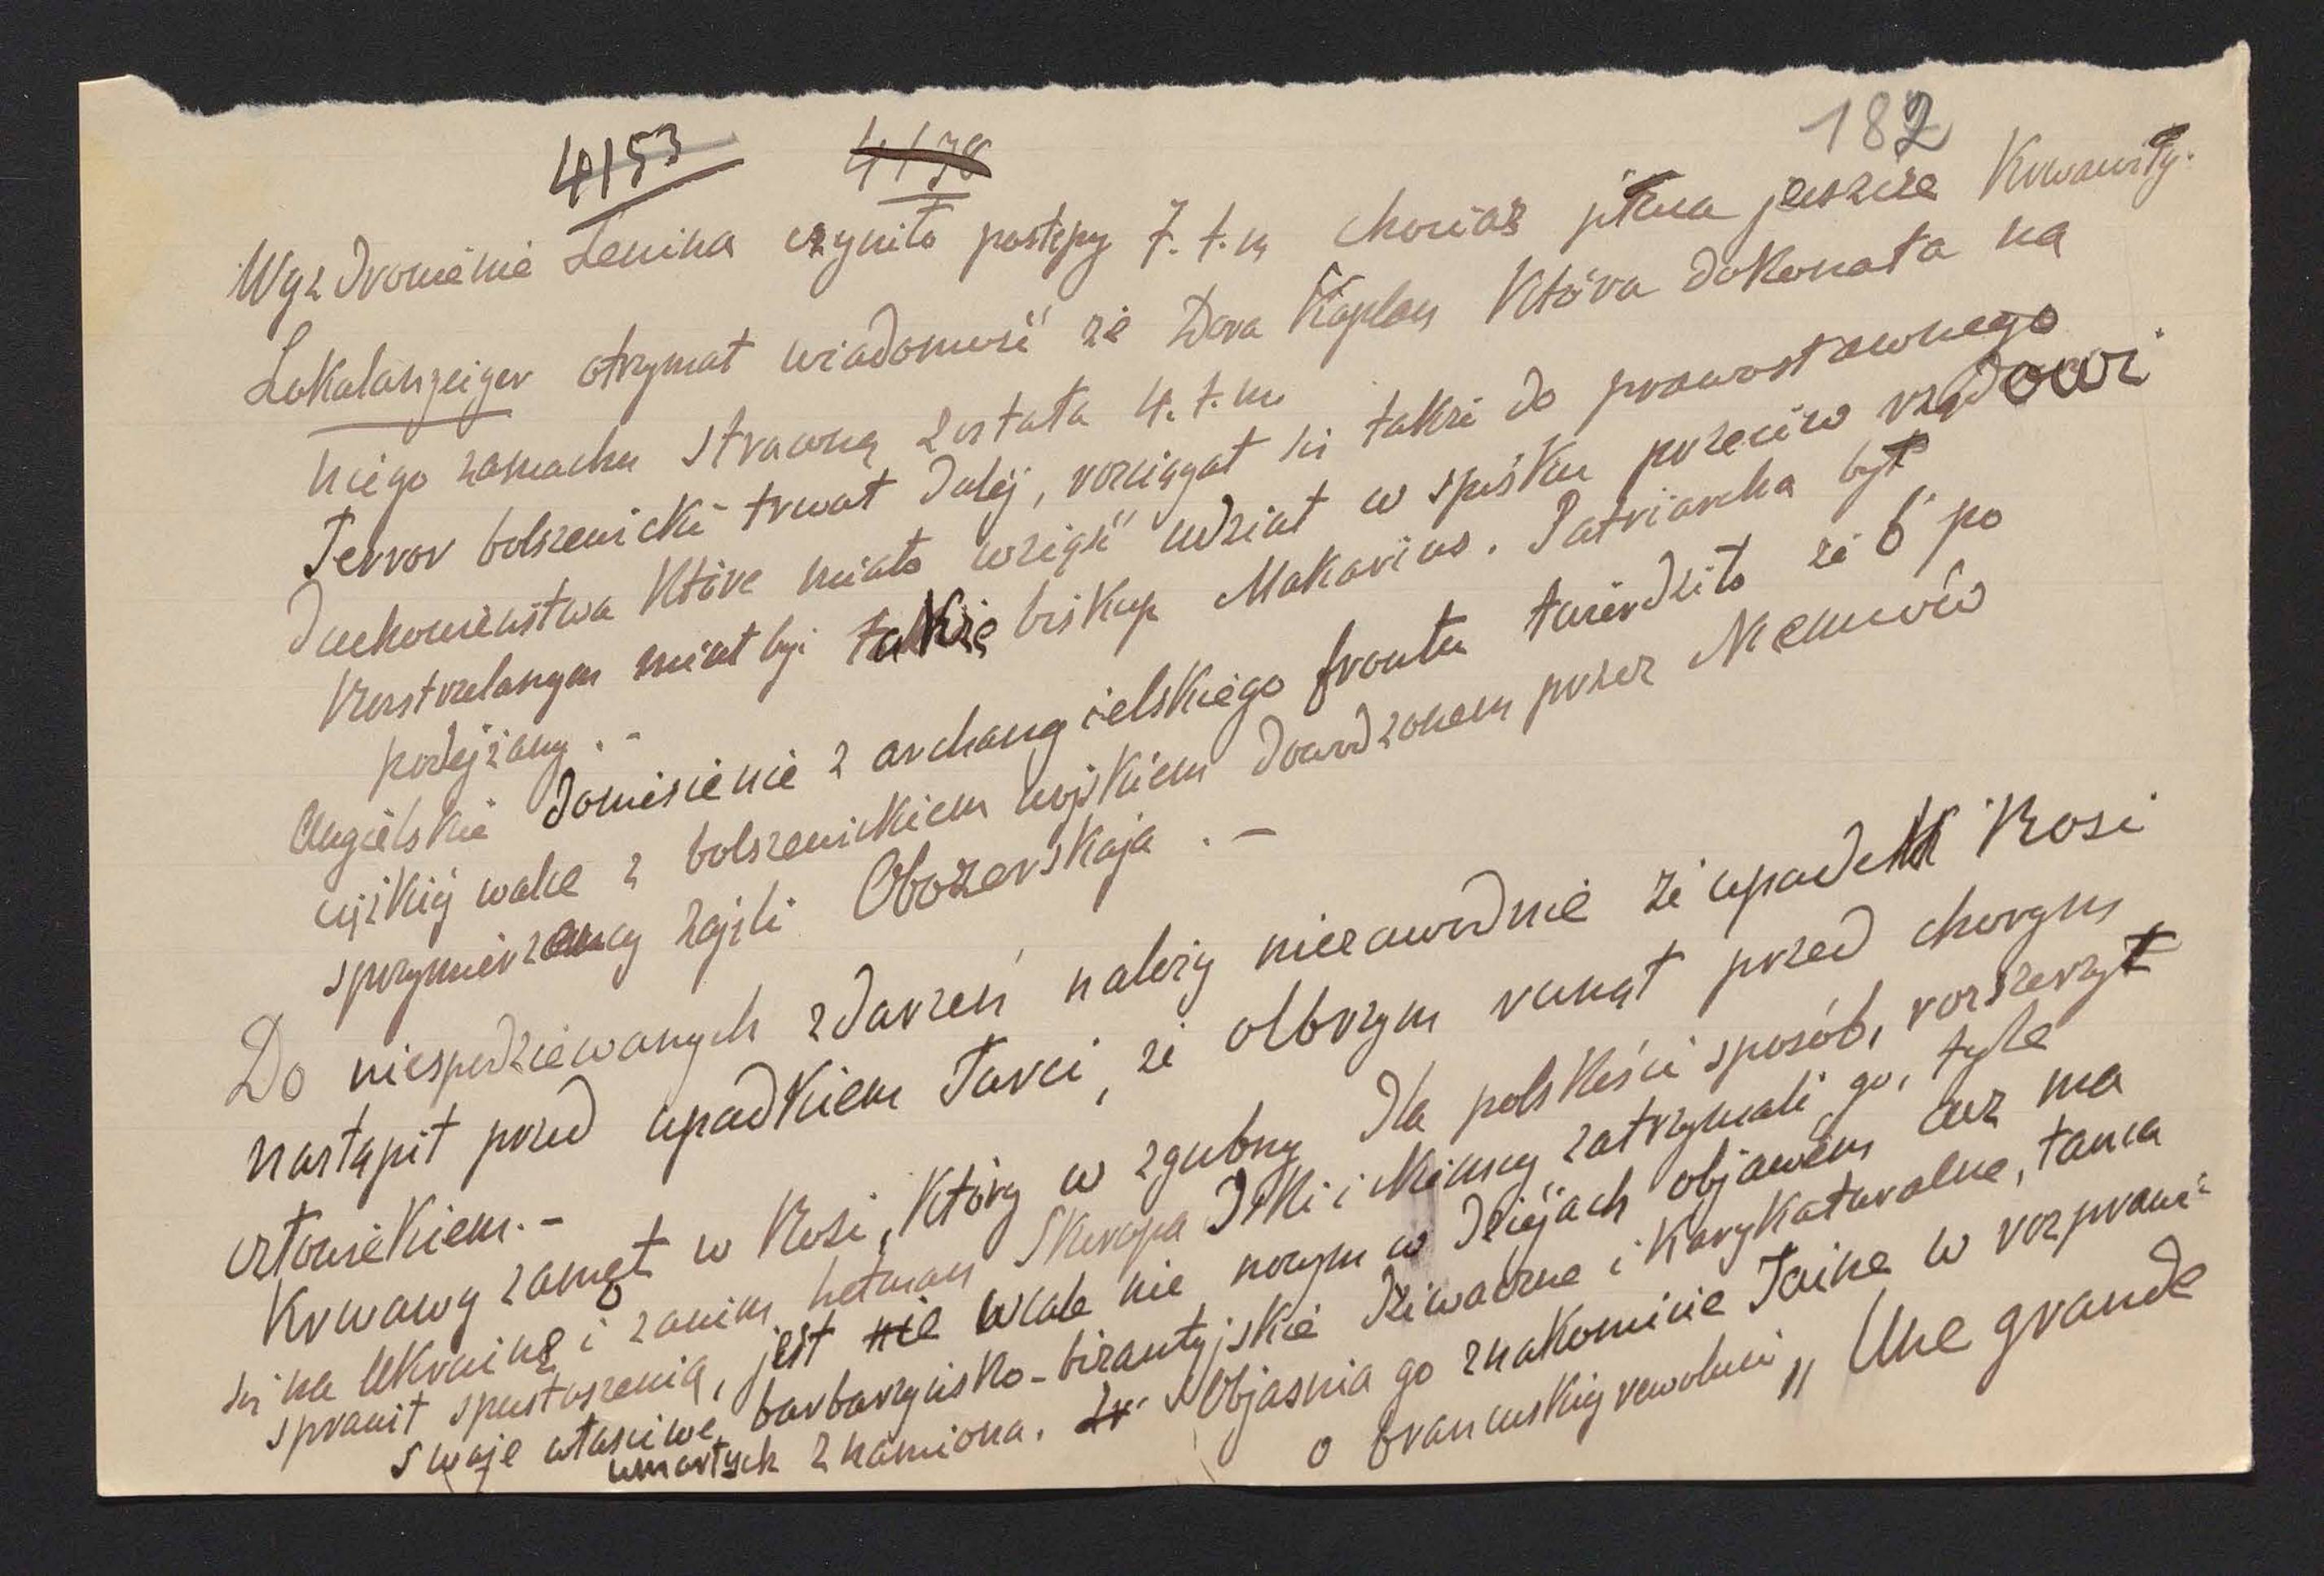 4153 4178 182
Wyzdrowienie Lenina czyniło postępy 7. t.m chociaż plwa jeszcze Krwawity.
Lokalanzeiger otrzymał wiadomość że Dora Kaplan Która dokonała na
niego zamachu straconą została 4. t.m.
Terror bolszewicki trwał dalej, rozciągał się także do prawosławnego
Duchowieństwa Które miało wziąść udział w spisku przeciw rządowi
Rozstrzelanym miał być także biskup Makarius. Patriarcha był
podejżany. -
Angielskie Doniesienie z archangielskiego frontu twierdziło że 6 po
ciężkiej walce z bolszewickiem wojskiem dowodzonem przez Niemców
sprzymierzency zajęli Obozerskaja. -
Do niespodziewanych zdarzeń należy niezawodnie że upadek Rosi
nastąpił przed upadkiem Turci, że olbrzym runął przed chorym
człowiekiem. -
Krwawy zamęt w Rosi, Który w zgubny dla polskości sposób, rozszerzył
się na Ukrainę i zanim hetman Skoropadzki i Niemcy zatrzymali go, tyle
sprawił spustoszenia, jest nie wcale nie nowym w dziejach objawem acz ma
swoje właściwe, barbarzynsko-bizantyjskie dziwaczne i Karykaturalne, tańca
umarłych znamiona. Objasnia go znakomicie Taine w rozprawie
o francuskiej rewoluci „Une grande